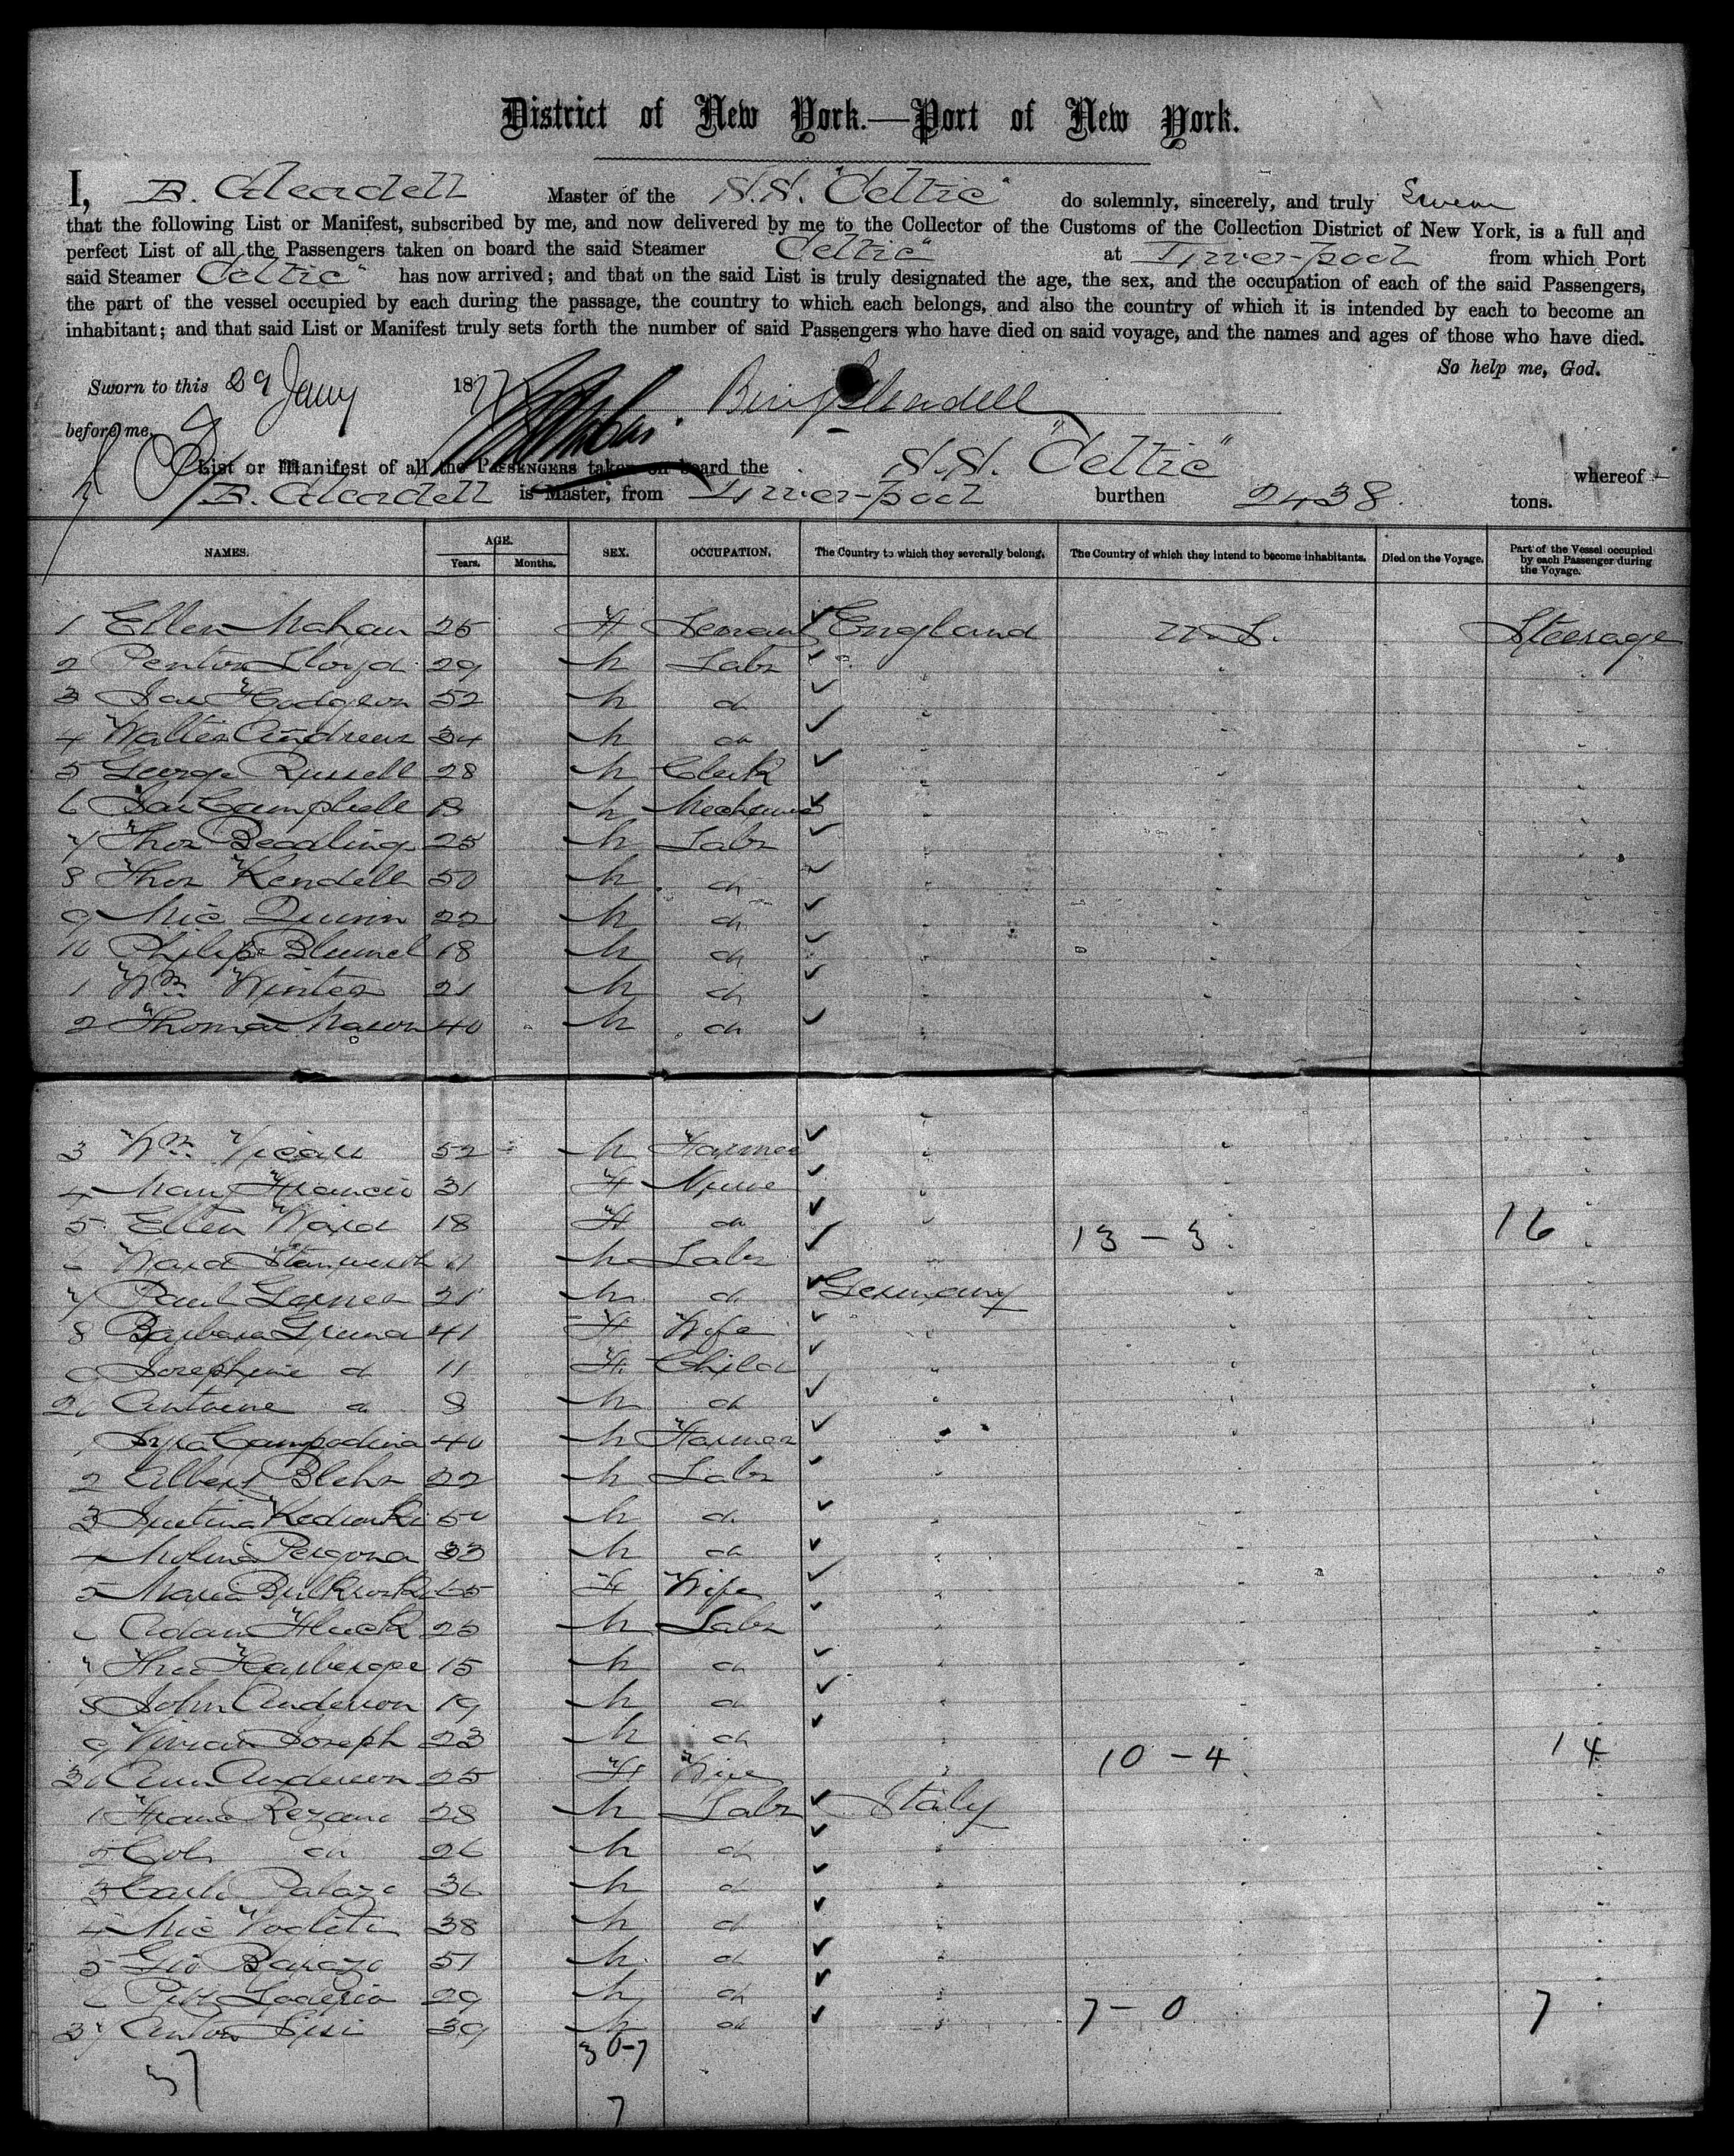 District of New York.—Port of New York.
I, B. Gleadell Master of the S.S. "Celtic" do solemnly, sincerely, and truly Swear
that the following List or Manifest, subscribed by me, and now delivered by me to the Collector of the Customs of the Collection District of New York, is a full and
perfect List of all the Passengers taken on board the said Steamer Celtic" at Liverpool from which Port
said Steamer Celtic" has now arrived; and that on the said List is truly designated the age, the sex, and the occupation of each of the said Passengers,
the part of the vessel occupied by each during the passage, the country to which each belongs, and also the country of which it is intended by each to become an
inhabitant; and that said List or Manifest truly sets forth the number of said Passengers who have died on said voyage, and the names and ages of those who have died.
So help me, God.
Sworn to this 29 Jany 1877 Benj Gleadell
before me,
List or Manifest of all the PASSENGERS taken on board the S.S. "Celtic" whereof
B. Gleadell is Master, from Liverpool burthen 2438 tons.
NAMES. AGE. Years. Months. SEX. OCCUPATION. The Country to which they severally belong. The Country of which they intend to become inhabitants. Died on the Voyage. Part of the Vessel occupied by each Passenger during the Voyage.
1 Ellen Mahan 25 F Servant England U.S. Steerage
2 Penton Lloyd 29 M Labr "
3 Jas Hodgson 52 M do "
4 Walter Andrews 34 M do "
5 George Russell 28 M Clerk "
6 Jas Campbell M Mechanic "
7 Thos Beadling 25 M Labr "
8 Thos Kendell 50 M do "
9 Mic Quinn 22 M do "
10 Philip Blumel 18 M do "
1 Wm Winter 21 M do "
2 Thomas Mason 40 M do "
3 Wm 52 M Farmer "
4 Mary Francis 31 F Nurse "
5 Ellen Ward 18 F do " 13 - 3 16
6 Ward M Labr "
7 Paul 21 M do Germany
8 Barbara 41 F Wife "
9 Josephine do 11 F Child "
20 Antoine do 8 M do "
1 Campodina 40 M Farmer "
2 Albert 22 M Labr "
3 M do "
4 33 M do "
5 Maria F Wife "
6 Adam Huck 25 M Labr "
7 15 M do "
8 John Anderson 19 M do "
9 Vivian Joseph 23 M do "
30 Ann Anderson 25 F Wife " 10 - 4 14
1 Franc Rezano 28 M Labr Italy
2 do 26 M do "
3 Carlo 36 M do "
4 Mic 38 M do "
5 Gio 51 M do "
6 29 M do "
37 Anton 39 M do " 7 - 0 7
30-7
37
7